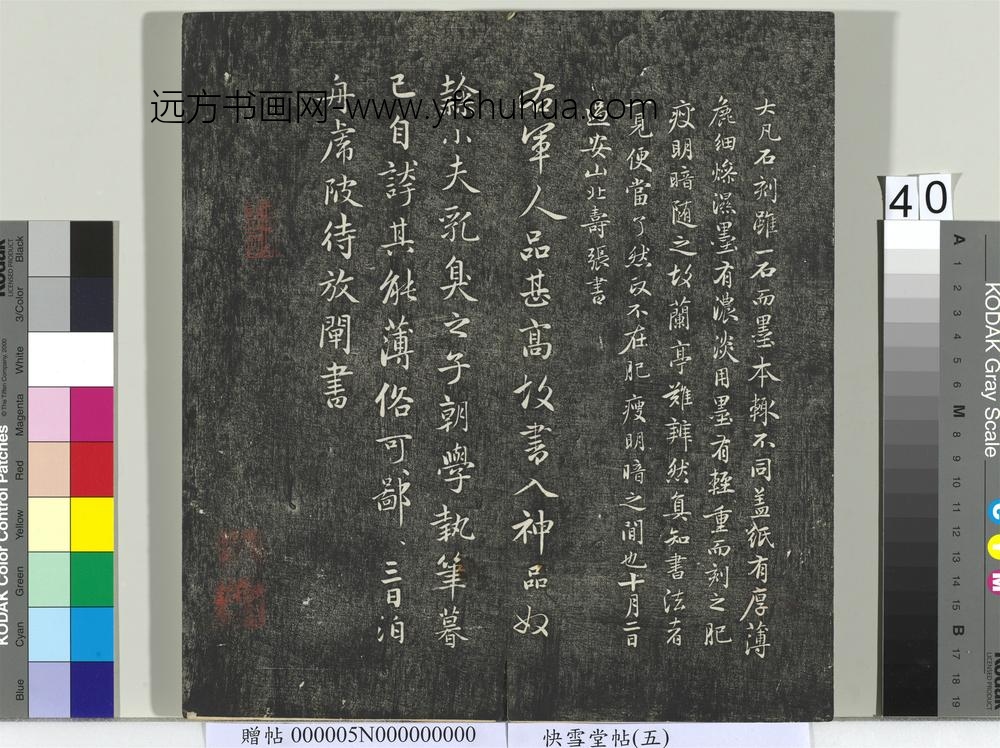 大凡石刻雖一石而墨本輙不同盖紙有厚薄
麁細燥濕墨有濃淡用墨有輕重而刻之肥
瘦明暗随之故蘭亭難辨然真知書法者
一見便當了然政不在肥瘦明暗之間也十月二日
過安山北壽張書
右軍人品甚高故書入神品奴
隸小夫乳臭之子朝學執筆暮
已自誇其能薄俗可鄙〻三日泊
舟虎陂待放閘書
远方书画网-www.yfshuhua.com
40
KODAK Gray Scale
A 1 2 3 4 5 6 M 8 9 10 11 12 13 14 15 B 17 18 19
C Y M
Kodak
LICENSED PRODUCT
KODAK Color Control Patches
© The Tiffen Company, 2000
Blue Cyan Green Yellow Red Magenta White 3/Color Black
贈帖 000005N000000000
快雪堂帖(五)